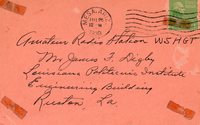 MESA, ARIZ.
Amateur Radio Station W5HGT
Mr. James F. Digby
Louisiana Politecnic Institute
Engineering Building
Ruston La